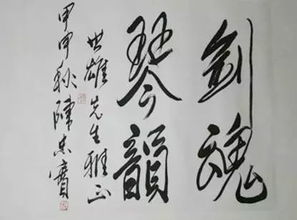 剑魂
琴韻
世雄先生雅正
甲申秋陳忠實